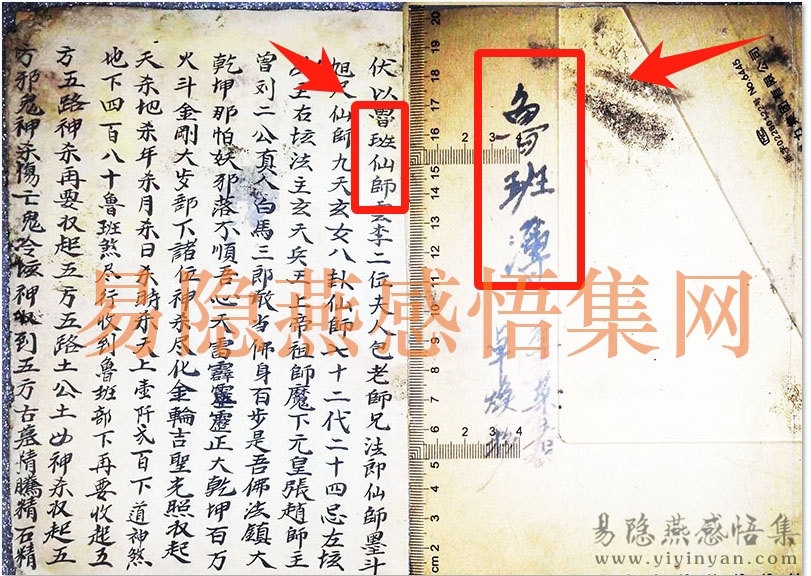 伏以魯班仙師雲李二位夫人包老師兄法郎仙師墨斗
旭尺仙師九天玄女八卦仙師七十二代二十四忌左坛
坛主右坛法主玄天兵王上帝祖師魔下元皇張趙師主
曾刘二公真人白馬三郎敢当佛身百步是吾佛法鎮大
乾坤那怕妖邪落不順吾心天雷霹靂靈正大乾坤百万
火斗金剛大歩部下諸位神杀尽化金輪吉聖光照收起
天杀地杀年杀月杀日杀時杀天上壹阡弍百下道神煞
地下四百八十魯班煞尽行收到魯班部下再要收起五
方五路神杀再要收起五方五路土公土母神杀收起五
方邪鬼神杀傷亡鬼冷坛神收到五方古墓精騰精石精
魯班薄
易隐燕感悟集网
易隐燕感悟集
www.yiyinyan.com